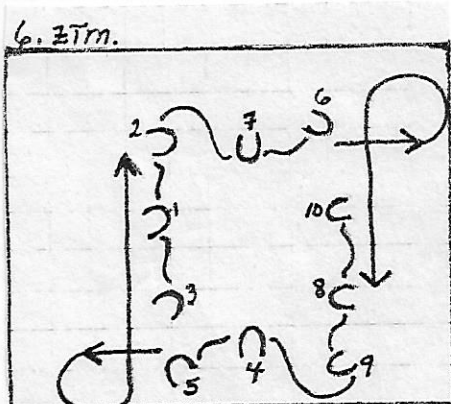 6. ZTm.
2
7
6
1
10
3
8
5
4
9